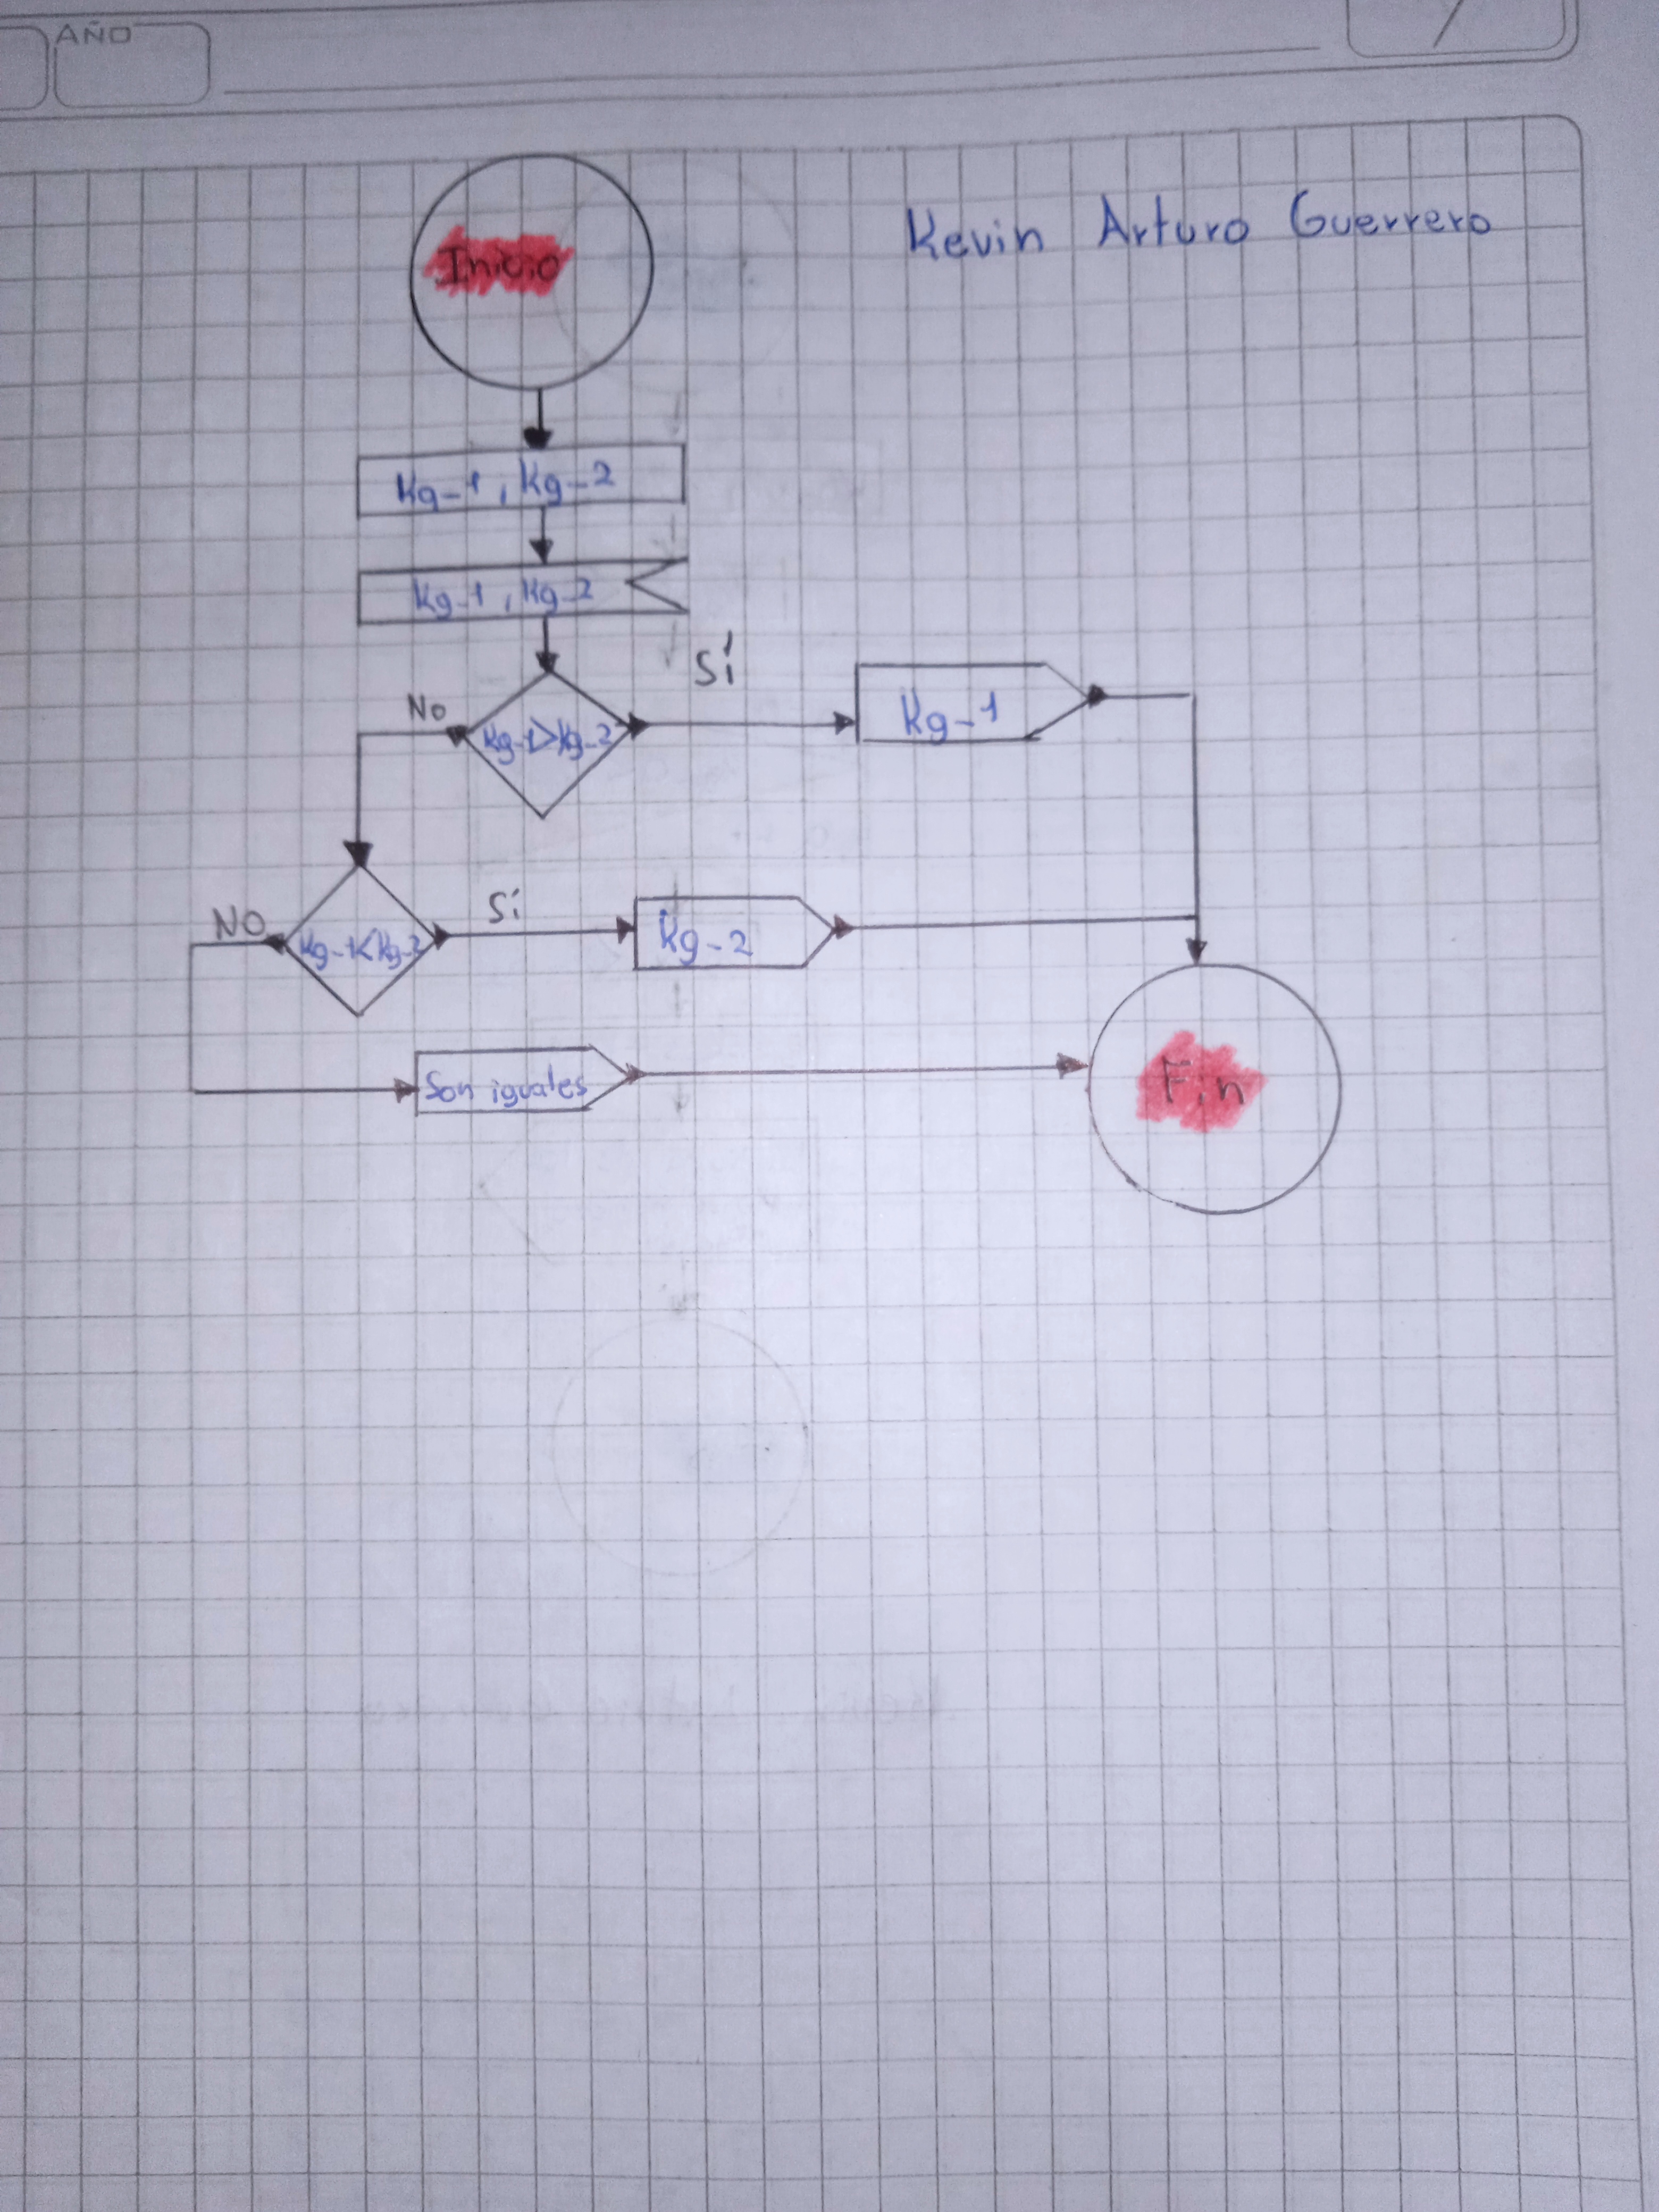 AÑO
Kevin Arturo Guerrero
Inicio
Kg-1, Kg-2
Kg-1, Kg-2
Sí
No
Kg-1>Kg-2
Kg-1
NO
Sí
Kg-1<Kg-2
Kg-2
Son iguales
Fin